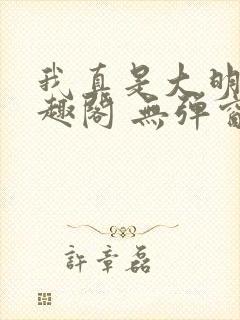 我真是大明
趣阁 無彈窗
許章磊